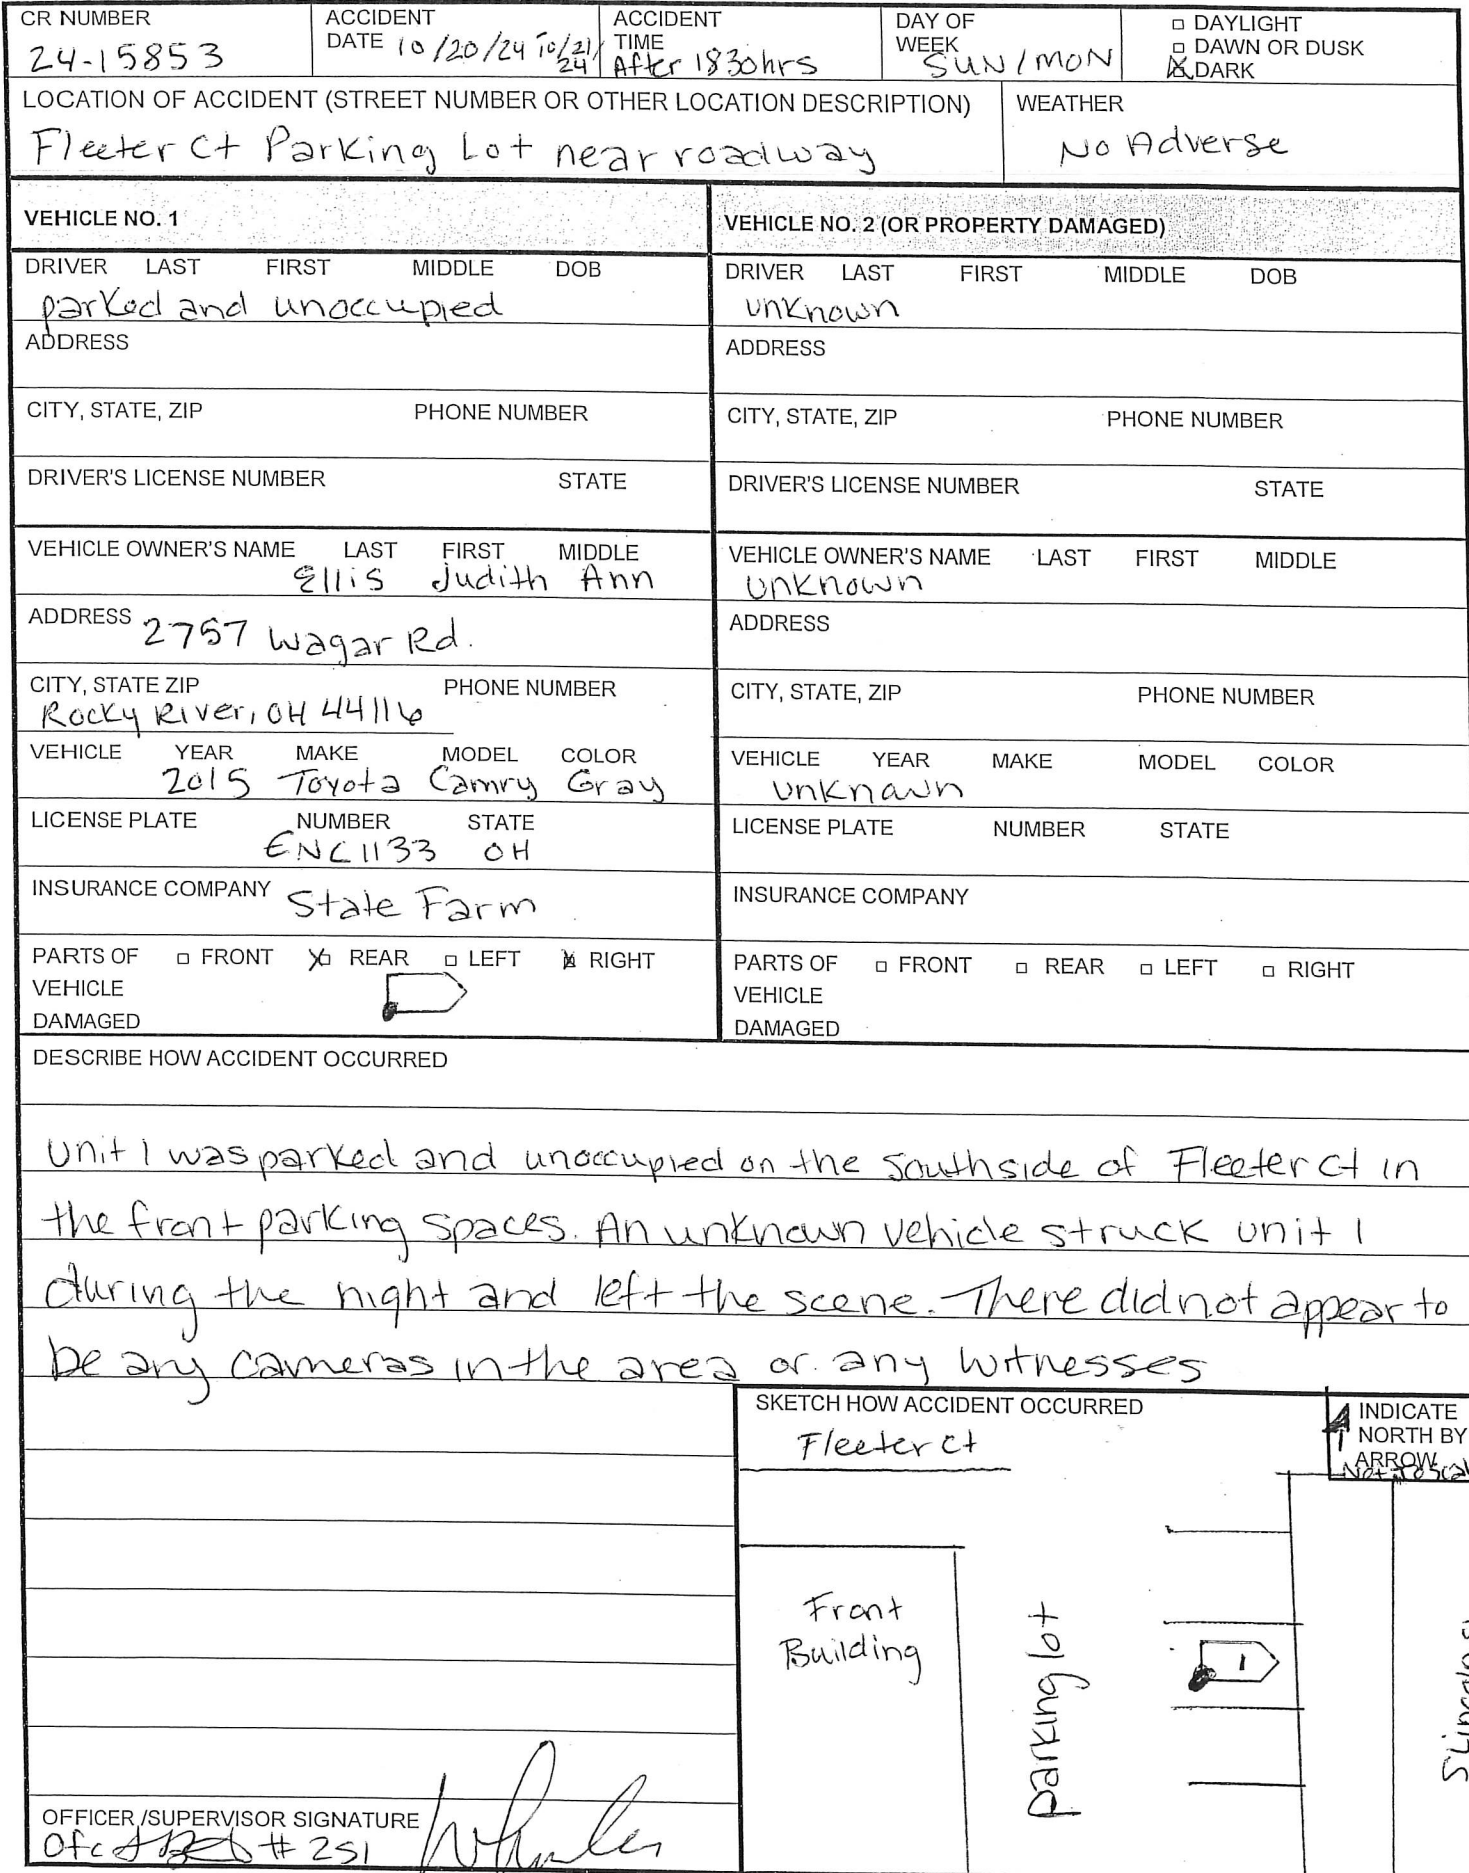 CR NUMBER
24-15853
ACCIDENT
DATE 10/20/24 10/21/24
ACCIDENT
TIME
After 1830hrs
DAY OF
WEEK
SUN/MON
□ DAYLIGHT
□ DAWN OR DUSK
☒ DARK
LOCATION OF ACCIDENT (STREET NUMBER OR OTHER LOCATION DESCRIPTION)
Fleeter Ct Parking Lot near roadway
WEATHER
No Adverse
VEHICLE NO. 1
DRIVER LAST FIRST MIDDLE DOB
parked and unoccupied
ADDRESS
CITY, STATE, ZIP PHONE NUMBER
DRIVER'S LICENSE NUMBER STATE
VEHICLE OWNER'S NAME LAST FIRST MIDDLE
Ellis Judith Ann
ADDRESS 2757 Wagar Rd.
CITY, STATE ZIP PHONE NUMBER
Rocky River, OH 44116
VEHICLE YEAR MAKE MODEL COLOR
2015 Toyota Camry Gray
LICENSE PLATE NUMBER STATE
ENC1133 OH
INSURANCE COMPANY State Farm
PARTS OF □ FRONT ☒ REAR □ LEFT ☒ RIGHT
VEHICLE
DAMAGED
VEHICLE NO. 2 (OR PROPERTY DAMAGED)
DRIVER LAST FIRST MIDDLE DOB
unknown
ADDRESS
CITY, STATE, ZIP PHONE NUMBER
DRIVER'S LICENSE NUMBER STATE
VEHICLE OWNER'S NAME LAST FIRST MIDDLE
unknown
ADDRESS
CITY, STATE, ZIP PHONE NUMBER
VEHICLE YEAR MAKE MODEL COLOR
unknown
LICENSE PLATE NUMBER STATE
INSURANCE COMPANY
PARTS OF □ FRONT □ REAR □ LEFT □ RIGHT
VEHICLE
DAMAGED
DESCRIBE HOW ACCIDENT OCCURRED
Unit 1 was parked and unoccupied on the southside of Fleeter ct in
the front parking spaces. An unknown vehicle struck unit 1
during the night and left the scene. There did not appear to
be any cameras in the area or any witnesses
SKETCH HOW ACCIDENT OCCURRED
Fleeter ct
INDICATE
NORTH BY
ARROW
Not To Scal
Front
Building
parking lot
1
OFFICER/SUPERVISOR SIGNATURE
Ofc # 251